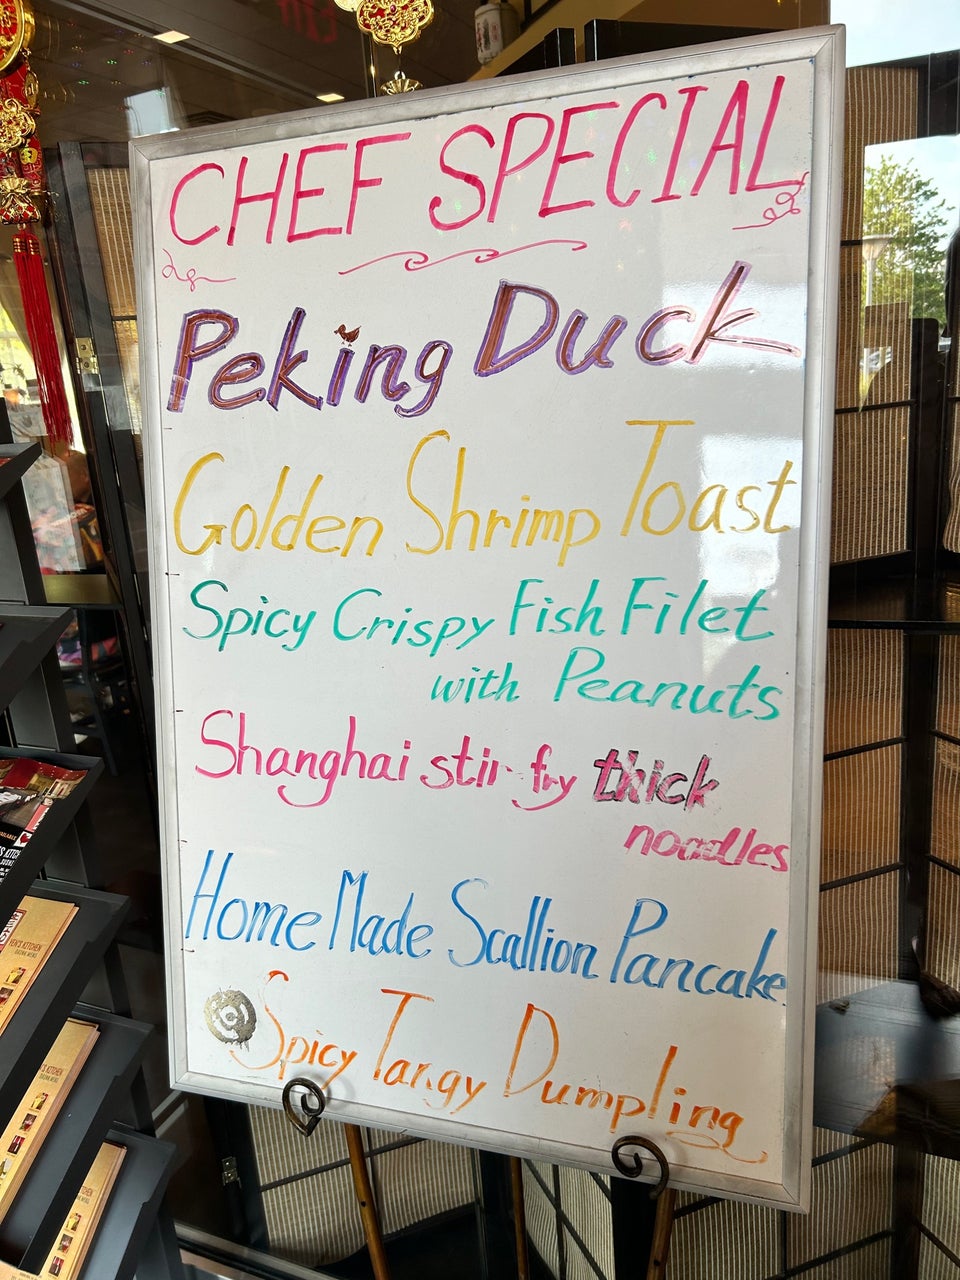 CHEF SPECIAL
Peking Duck
Golden Shrimp Toast
Spicy Crispy Fish Filet
with Peanuts
Shanghai stir fry thick
noodles
Home Made Scallion Pancake
Spicy Tangy Dumpling